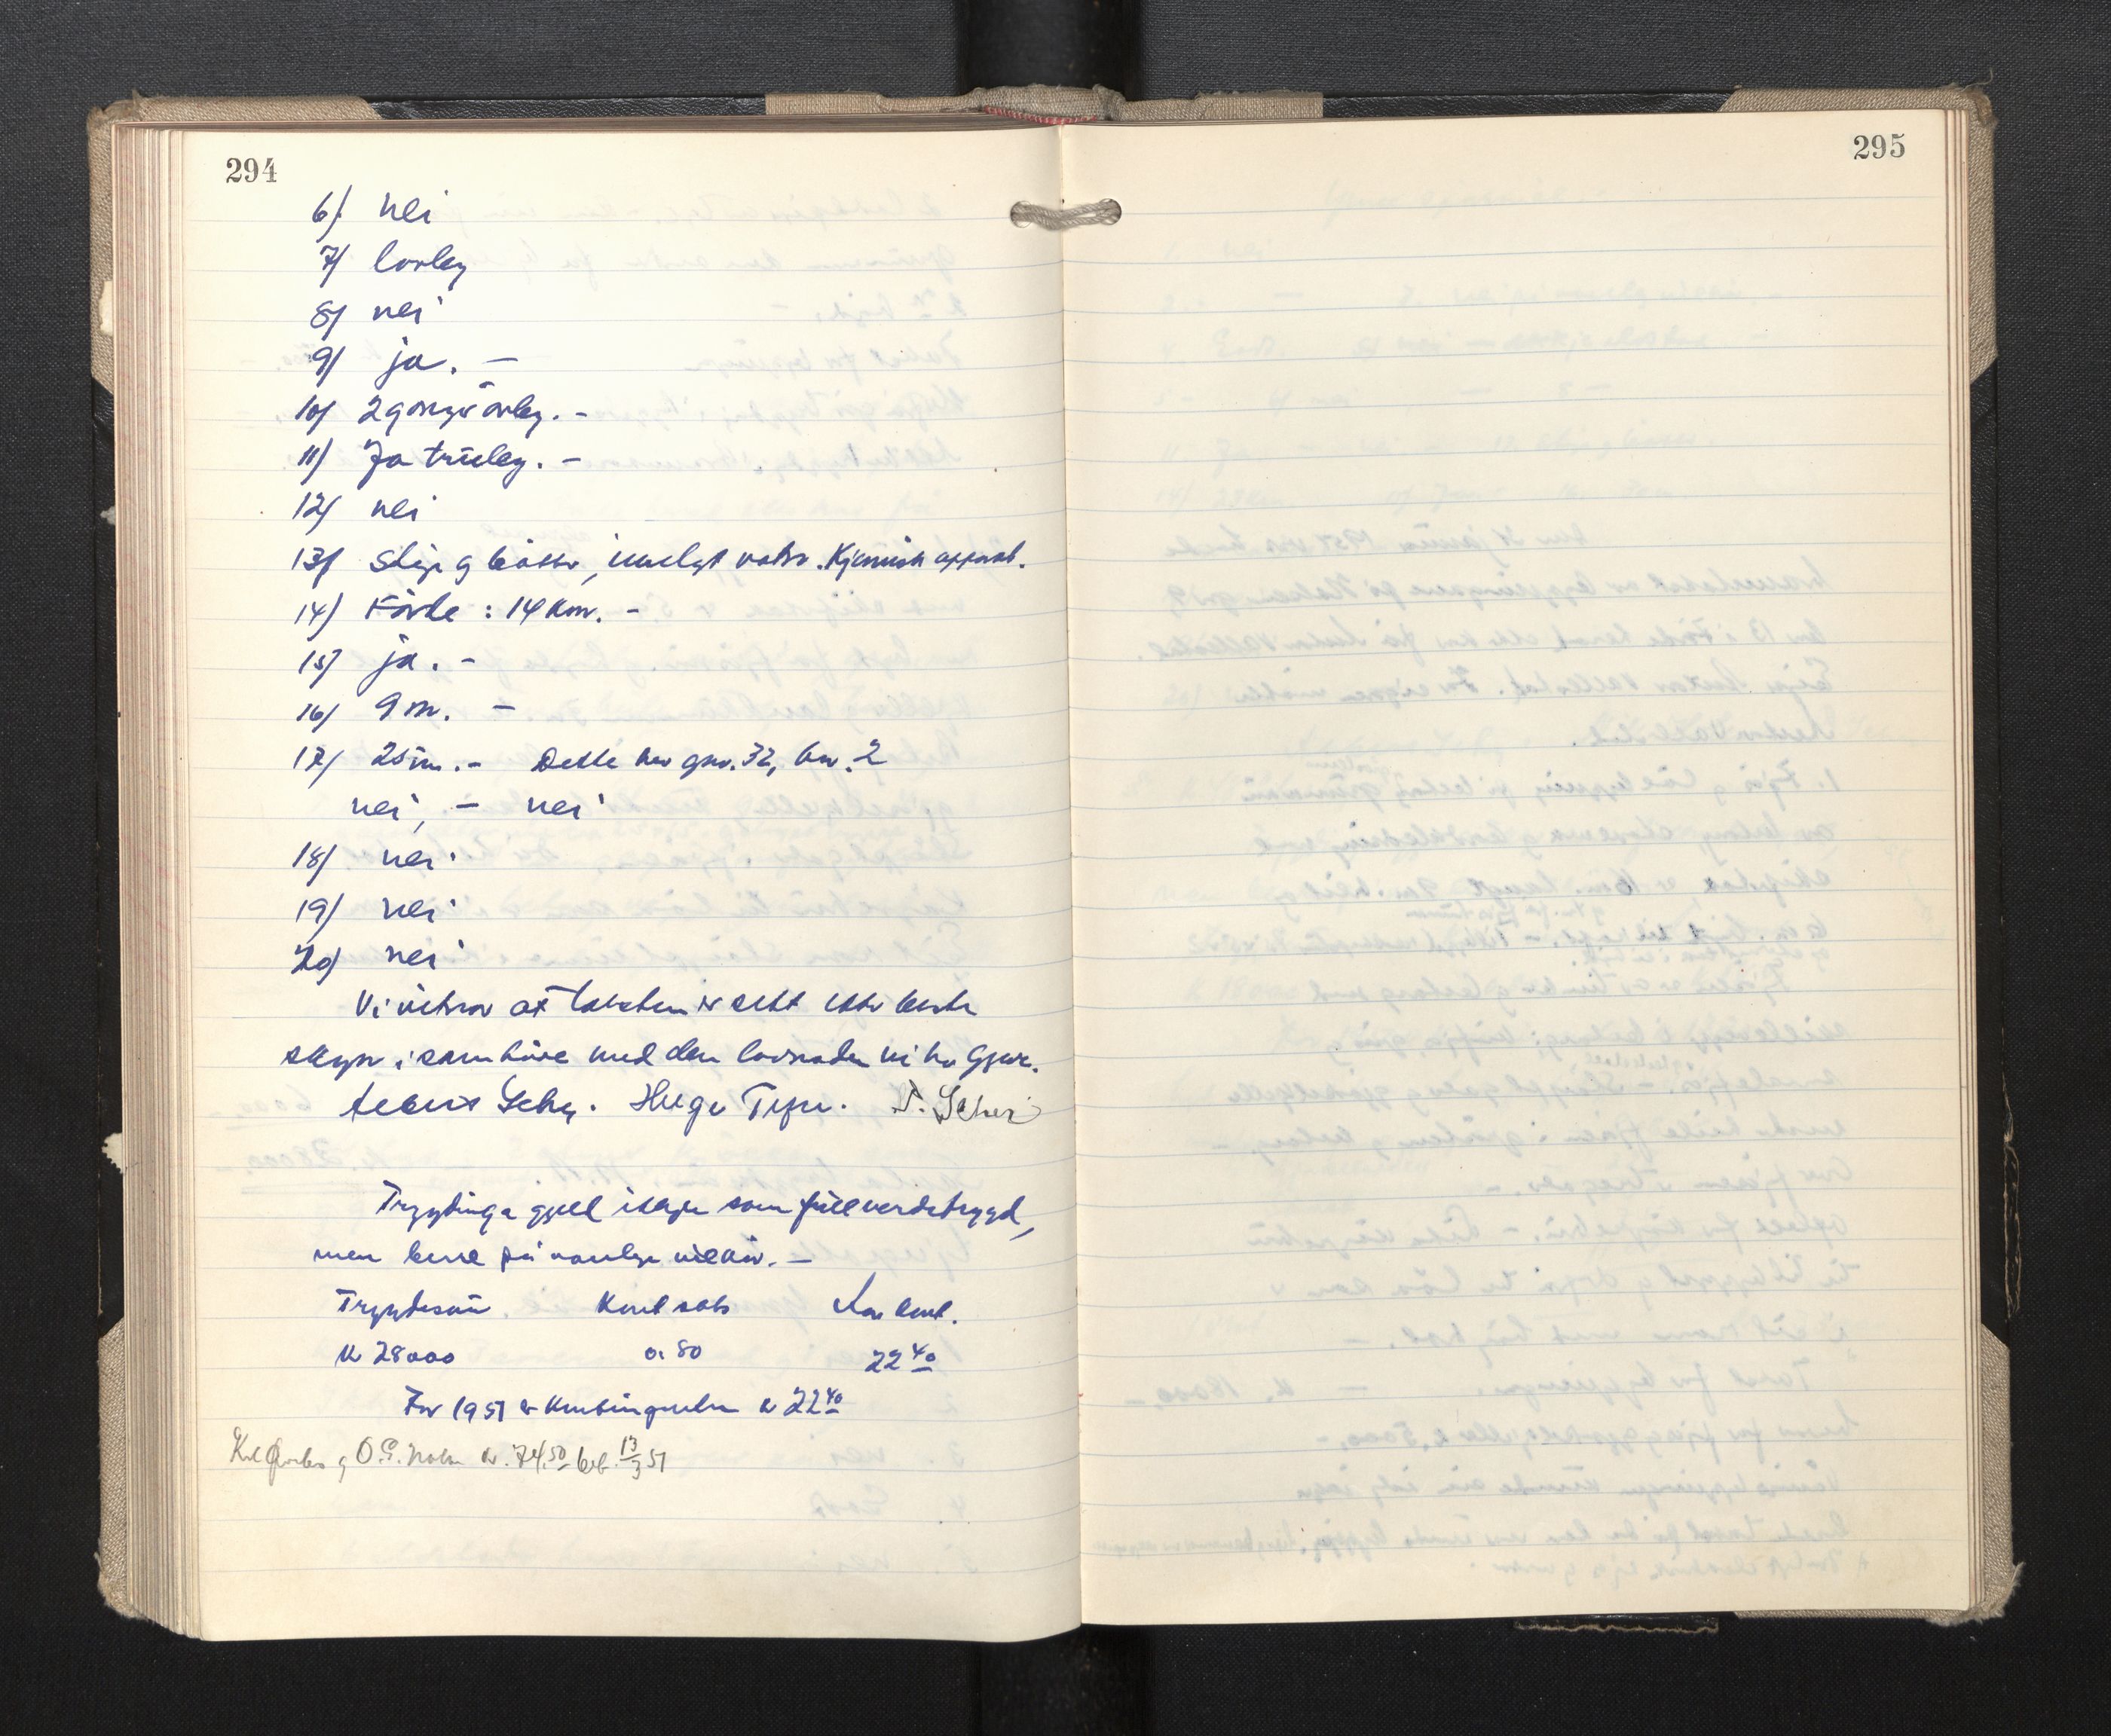 294
6/ nei
7/ lovleg
8/ nei
9/ ja. —
10/ 2 gonger årleg. -
11/ Ja truleg. -
12/ nei
13/ Stige og bøtter, innlagt vatn. Kjemisk apparat.
14/ Førde : 14 km. -
15/ ja. -
16/ 9 m. -
17/ 25 m. - Dette har gnr. 32, bnr. 2
nei, — nei
18/ nei
19/ nei
20/ nei
Vi vitnar at taksten er sett etter beste
skyn i samhøve med den lovnaden vi har gjeve.
Helge T. Schei
Trygdinga gjeld ikkje som fullverdetrygd,
men berre på vanlege vilkår. —
Trygdesum Kont sats Kont.
kr 28000 0.80 22 40
For 1951 er kontingenten kr 22 40
og O. kr. 74.50 bet. 13/3 51
295